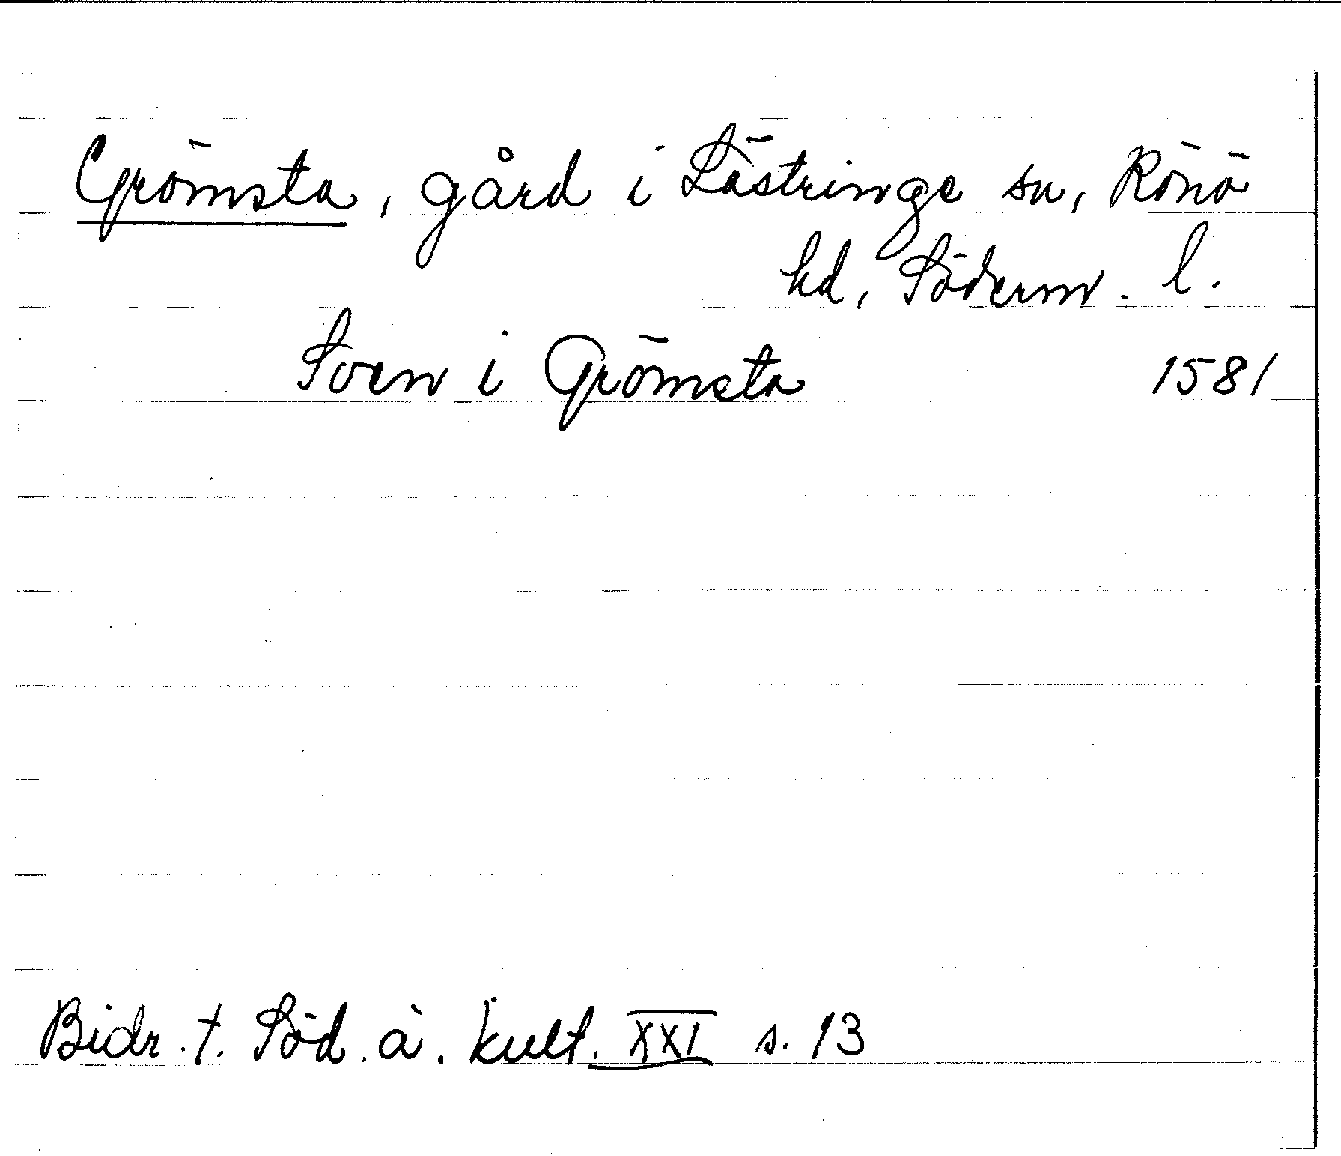 Grömsta, gård i Lästringe sn, Rönö
hd, Söderm. l.
Sven i Grömsta 1581
Bidr. t. Söd. ä. kult. XXI s. 13